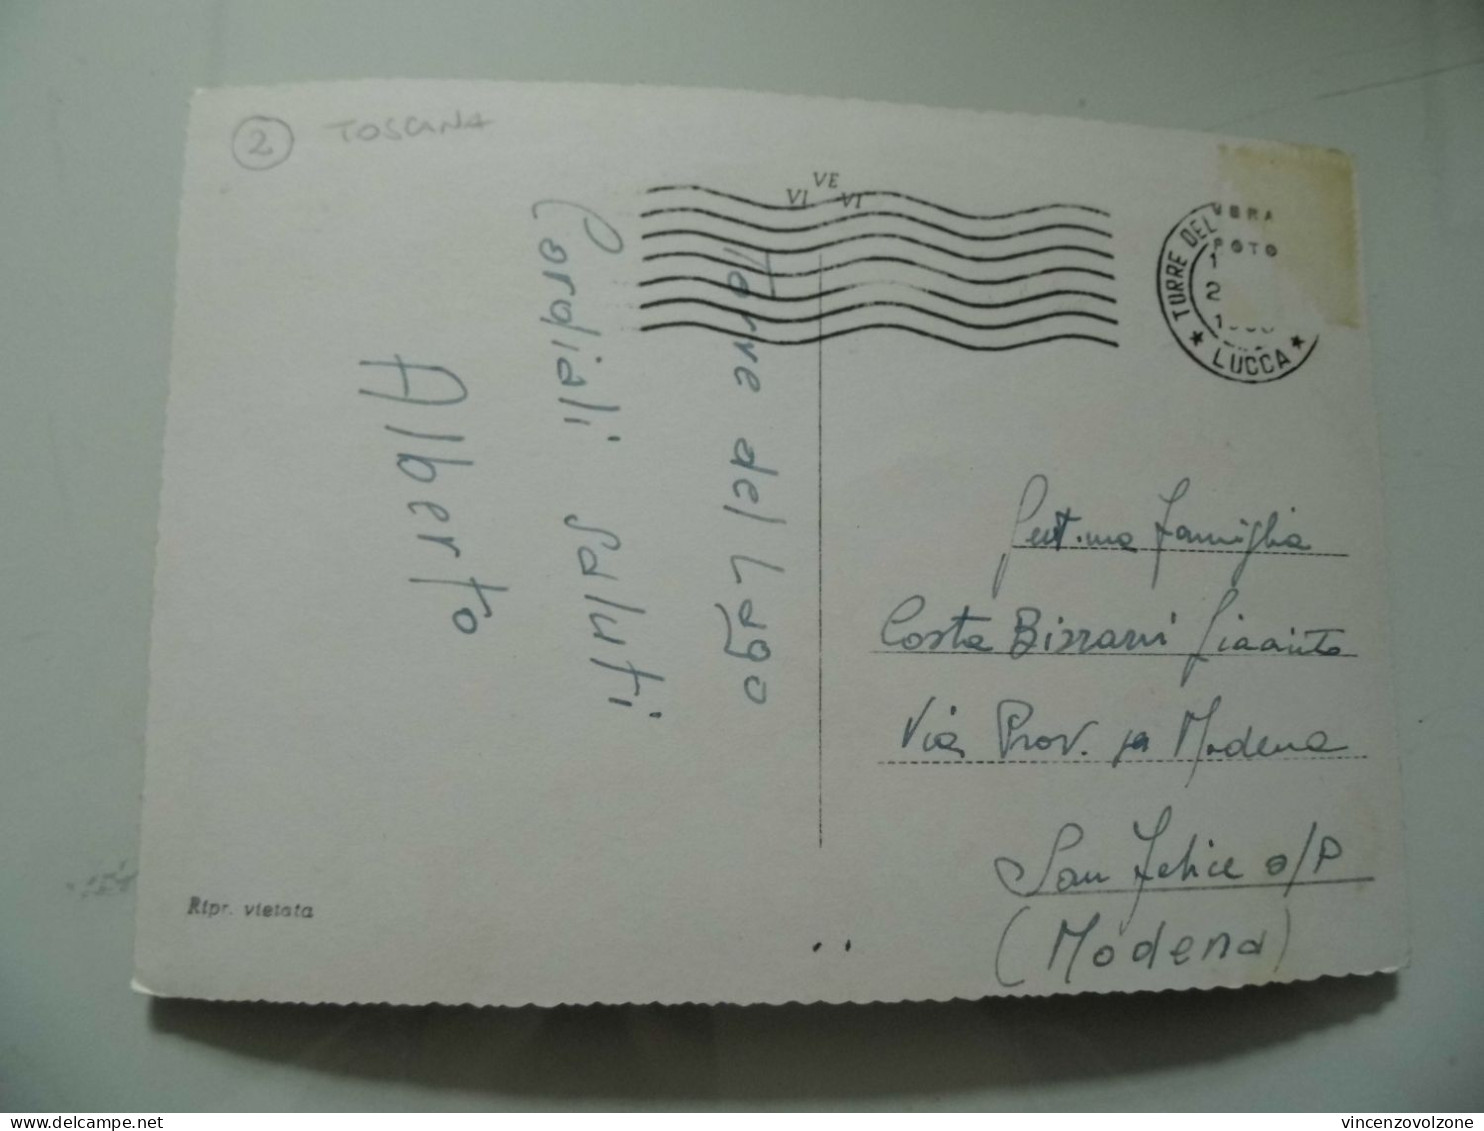 2 TOSCANA
VI VE VI
TORRE DEL
LUCCA
Torre del Lago
Cordiali saluti
Alberto
Gent.ma Famiglia
Costa Bizzarri Giacinto
Via Prov. per Modena
San Felice s/P
(Modena)
Ripr. vietata
vincenzovolzone